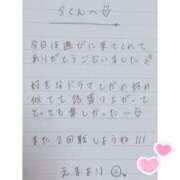 らくんへ♡
今日は遊びに来てくれて
ありがとうございました
好きなドラマとかお好み
似てて話盛り上がって
とっても楽しかったー♡
また2回戦しようね!!!